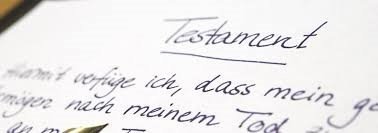 Testament
Hiermit verfüge ich, dass mein
nach meinem Tod